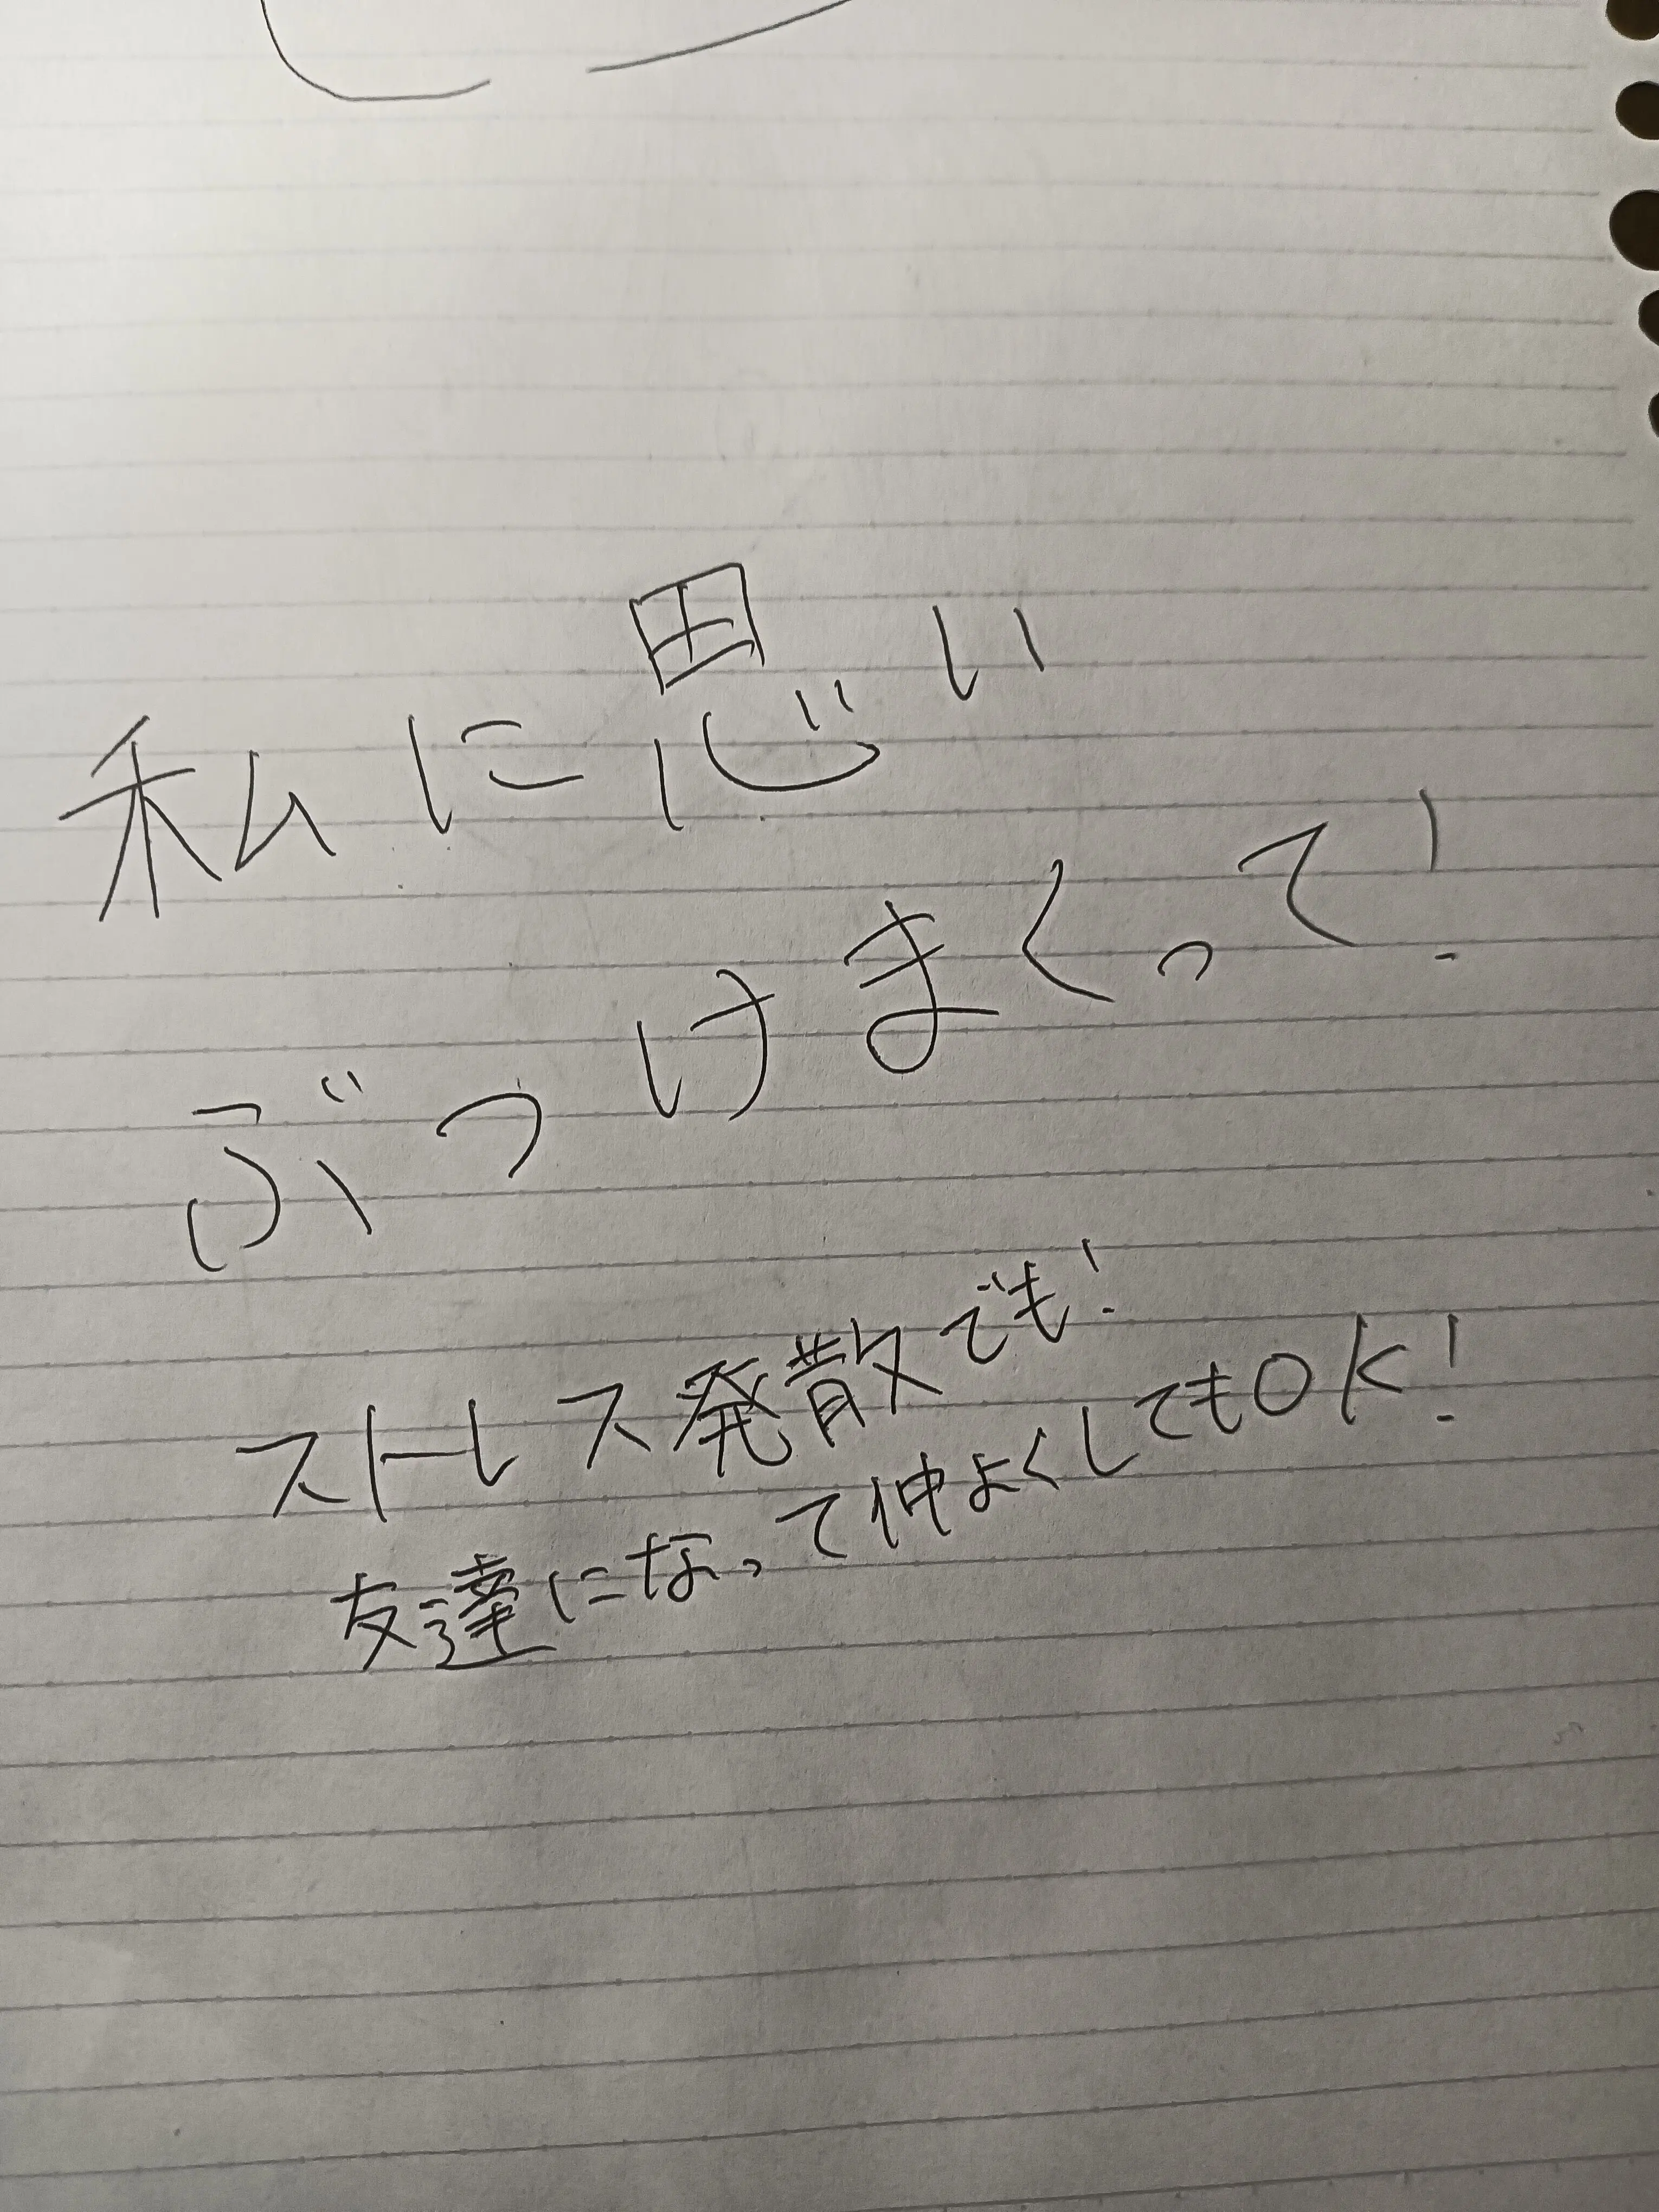 私に思い
ぶつけまくって!
ストレス発散でも!
友達になって仲よくしてもOK!